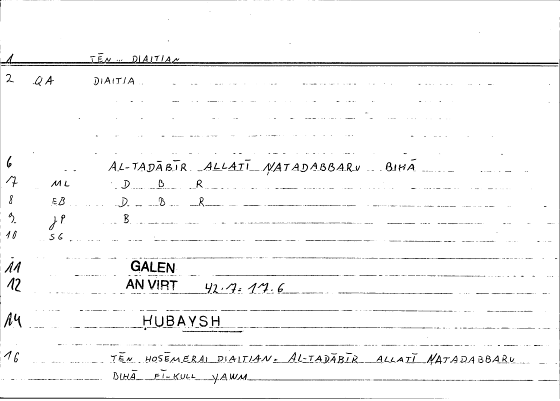 1 TĒN DIAITIAN
2 QA DIAITIA
6 AL-TADĀBĪR ALLATĪ NATADABBARU BIHĀ
7 ML D B R
8 EB D B R
9 JP B
10 SG
11 GALEN
12 AN VIRT 42.7: 17.6
14 HUBAYSH
16 TĒN HOSĒMERAI DIAITIAN: AL-TADĀBĪR ALLATĪ NATADABBARU
BIHĀ FĪ-KULL YAWM